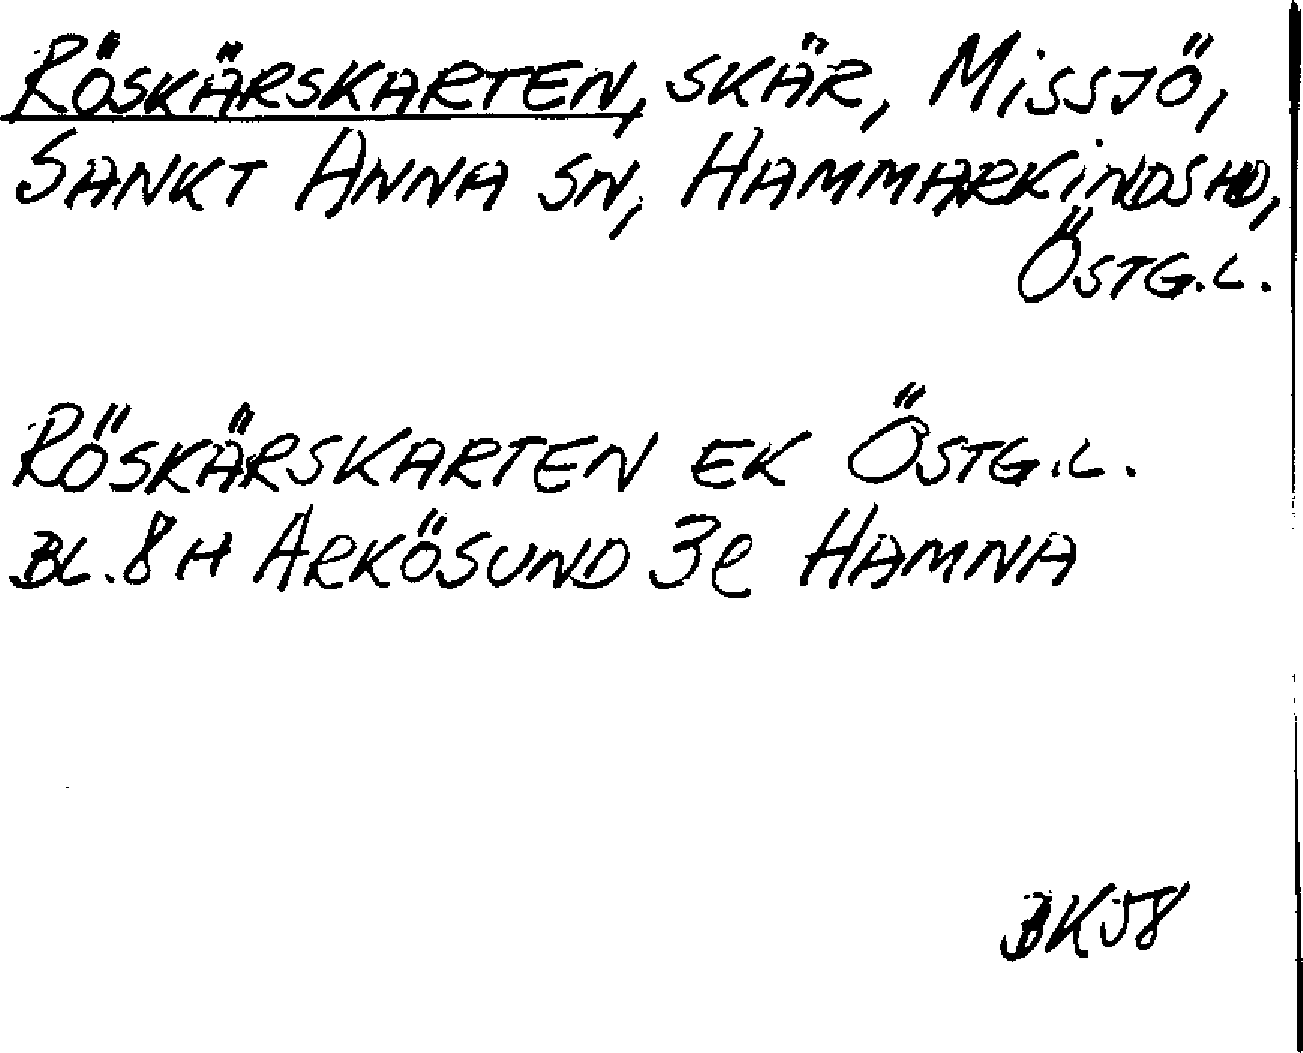 RÖSKÄRSKARTEN, SKÄR, MISSJÖ,
SANKT ANNA SN, HAMMARKINDS HD,
ÖSTG.L.
RÖSKÄRSKARTEN EK ÖSTG.L.
BL. 8H ARKÖSUND 3e HAMNA
BK58